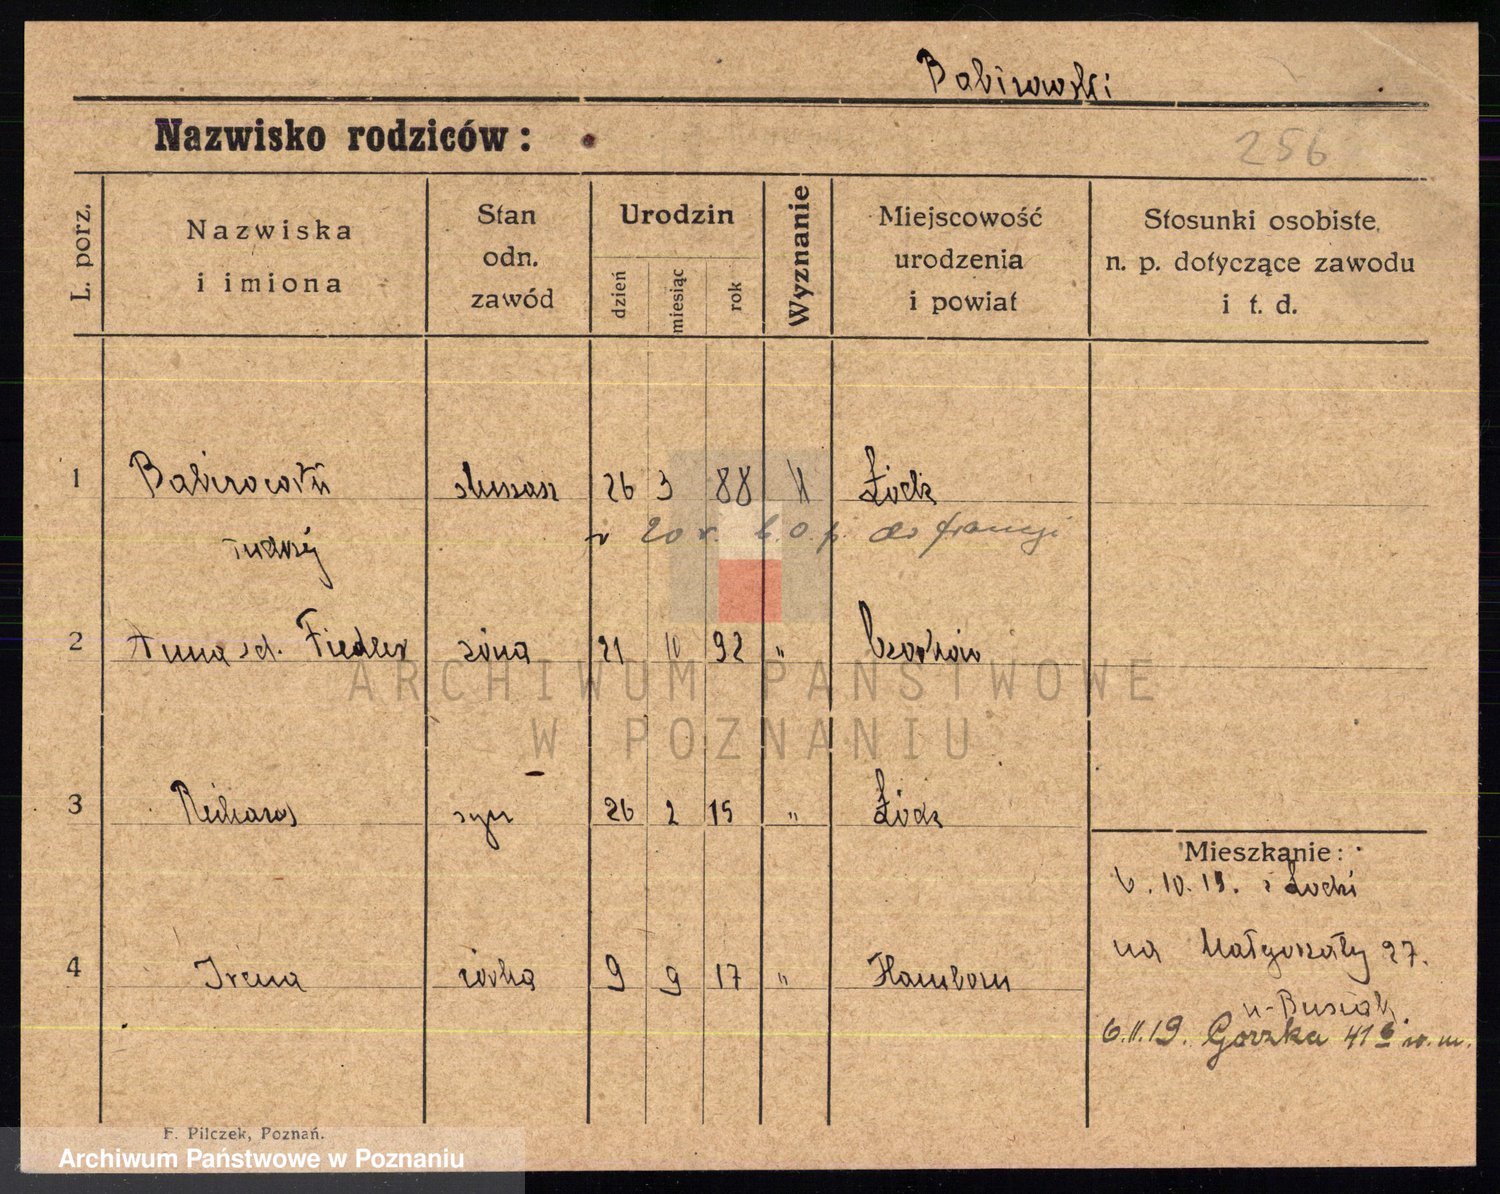 Babirowski
Nazwisko rodziców:
256
L. porz.
Nazwiska
i imiona
Stan
odn.
zawód
Urodzin
dzień
miesiąc
rok
Wyznanie
Miejscowość
urodzenia
i powiat
Stosunki osobiste,
n. p. dotyczące zawodu
i t. d.
1 Babirowski 26 3 88 Łódź
20 r. do
2 Anna Fiedler żona 21 11 92 "
3 Richard syn 26 2 15 " Łódź
Mieszkanie:
6.10.19. z Łodzi
4 Irena córka 9 9 17 " Hamborn
na Małgorzaty 27.
6.11.19. Gorzka 41
F. Pilczek, Poznań.
ARCHIWUM PAŃSTWOWE
W POZNANIU
Archiwum Państwowe w Poznaniu